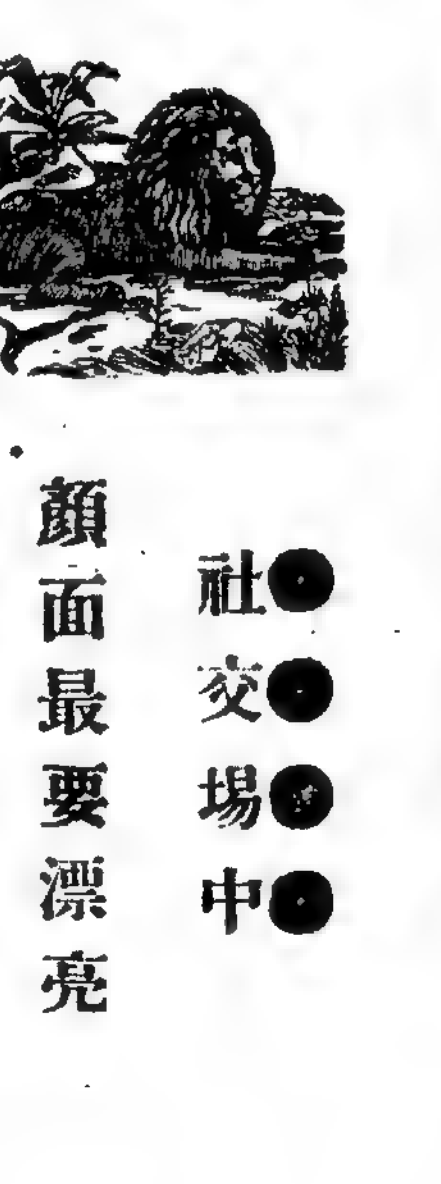 社交場中
顏面最要漂亮